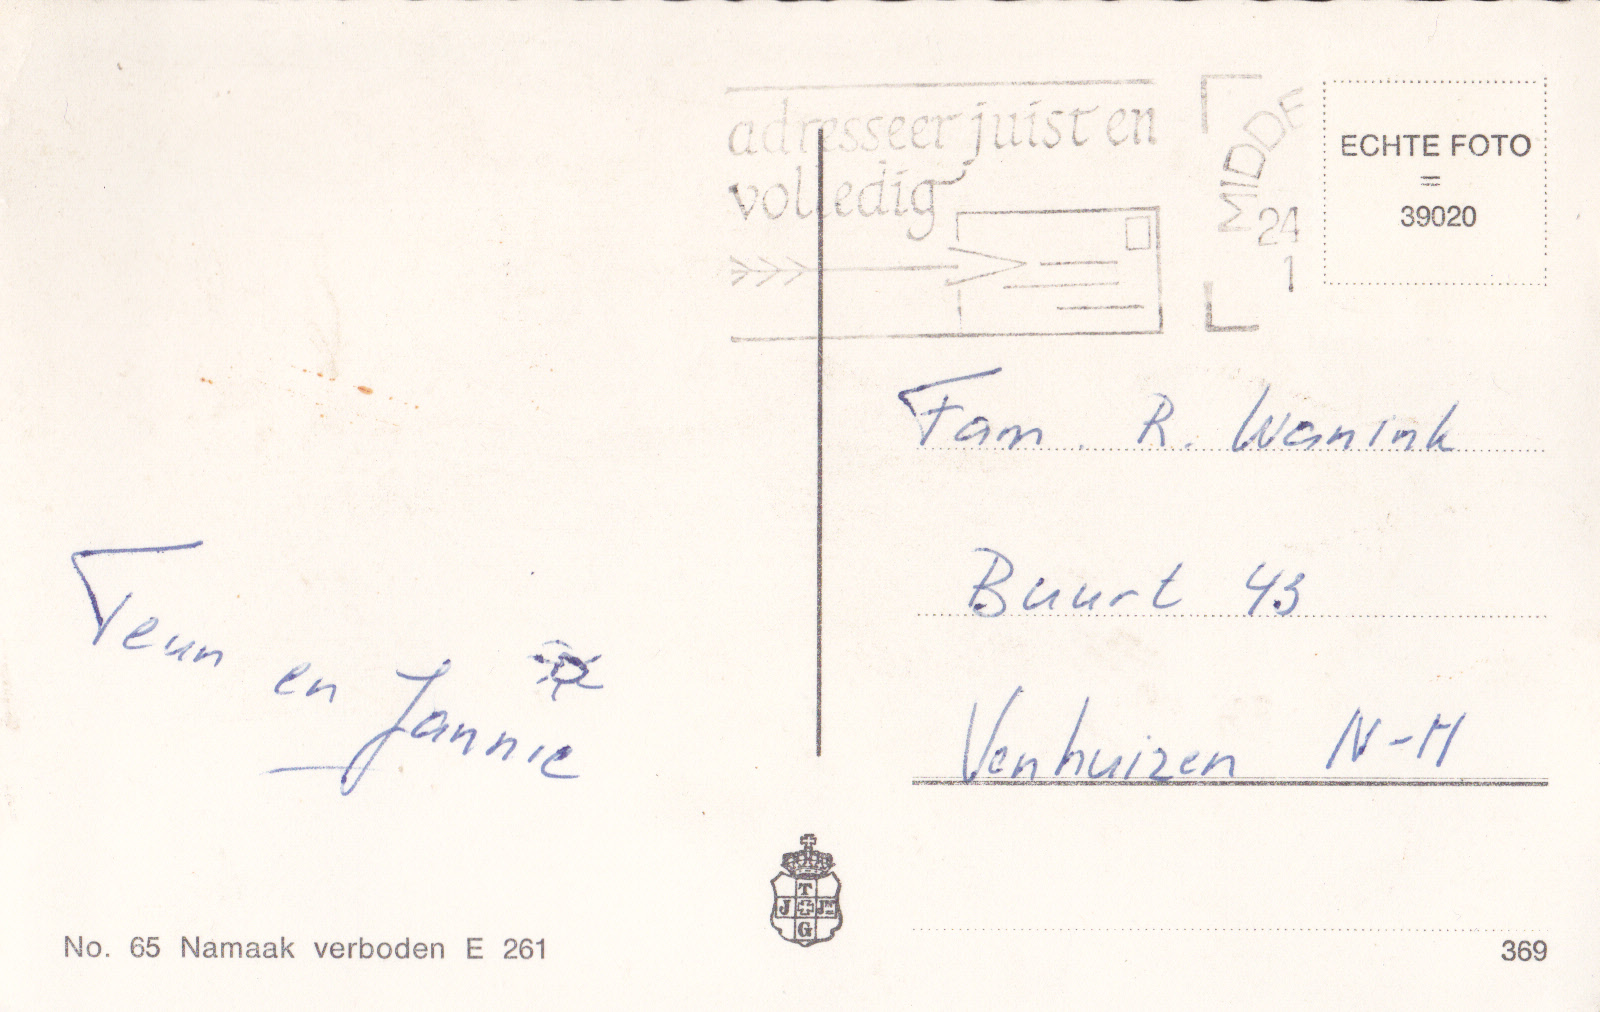 adresseer juist en
volledig
MIDDE
24
1
ECHTE FOTO
=
39020
Fam. R. Wanink
Buurt 43
Venhuizen N-H
Teun
en
Jannie
T
J Jr
G
No. 65 Namaak verboden E 261
369